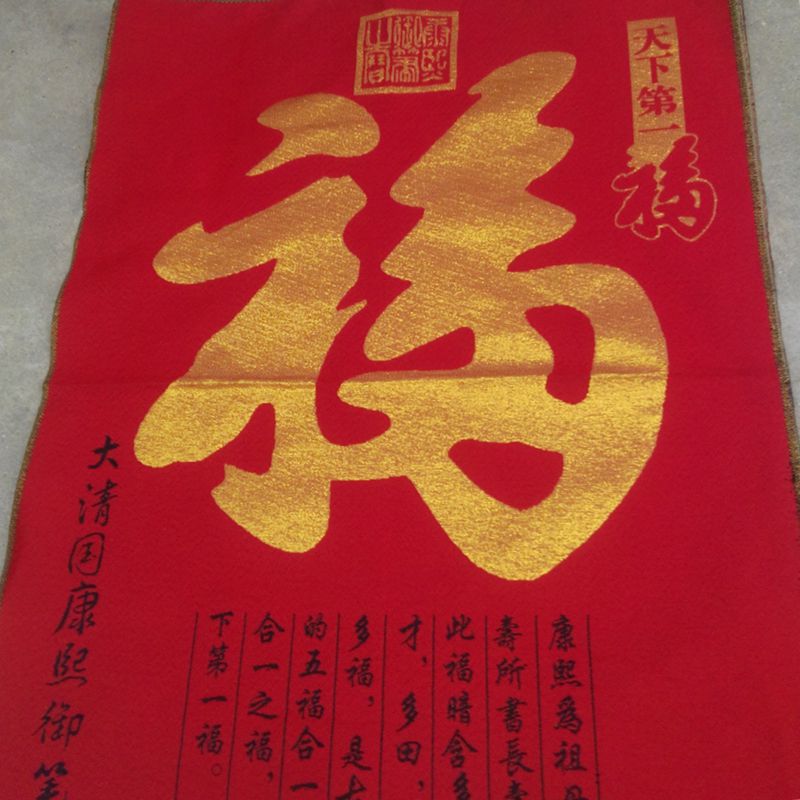 天下第一福
康熙御筆之寶
福
康熙為祖
壽所書長
此福暗含多
才，多田，
多福，是
的五福合一
合一之福，
下第一福。
大清国康熙御笔